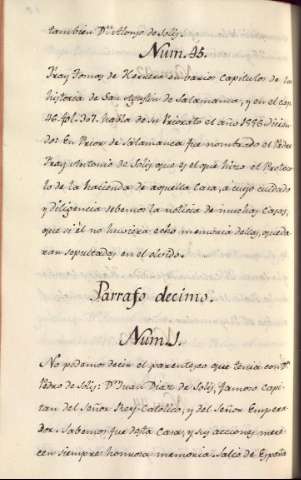 tambien Dn. Alonso de Solis.
Num. 45.
Fray Tomas de Herrera en varios capitulos de la
historia de San Agustin de Salamanca, y en el cap.
46. fol. 307. habla de su Priorato el año 1576. dicien
do: En Prior de Salamanca fue nombrado el Padre
Fray Antonio de Solis, que es el que hizo el Protoco
lo de la hacienda de aquella Casa, a cuyo cuidado
y diligencia debemos la noticia de muchas cosas,
que si el no huviera echo memoria dellas, queda
ran sepultadas en el olvido.
Parrafo decimo.
Num. 1.
No podemos decir el parentesco que tenia con Dn.
Pedro de Solis Dn. Juan Diaz de Solis, famoso Capi
tan del Señor Rey Catolico, y del Señor Empera
dor. Sabemos fue desta Casa, y sus acciones mere
cen siempre honrosa memoria. Salio de España